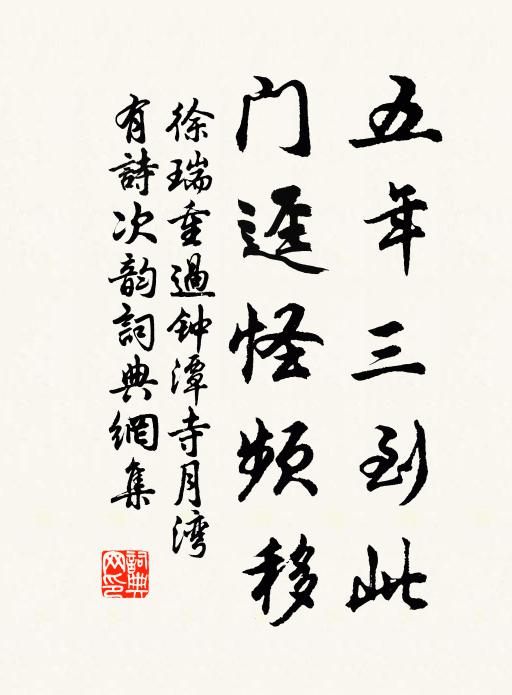 五年三到此
门迳怪频移
徐瑞重過钟潭寺月湾
有詩次韵詞典網集
詞典网印